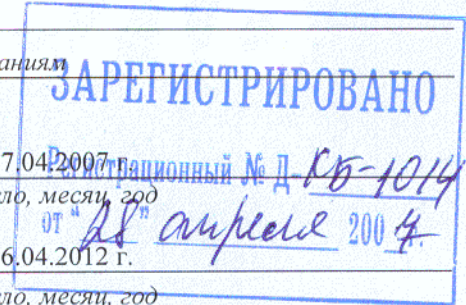 аниям
ЗАРЕГИСТРИРОВАНО
7.04.2007 г.
Регистрационный № Д-КБ-1014
ло, месяц, год
от "28" апреля 2007г.
6.04.2012 г.
ло, месяц, год